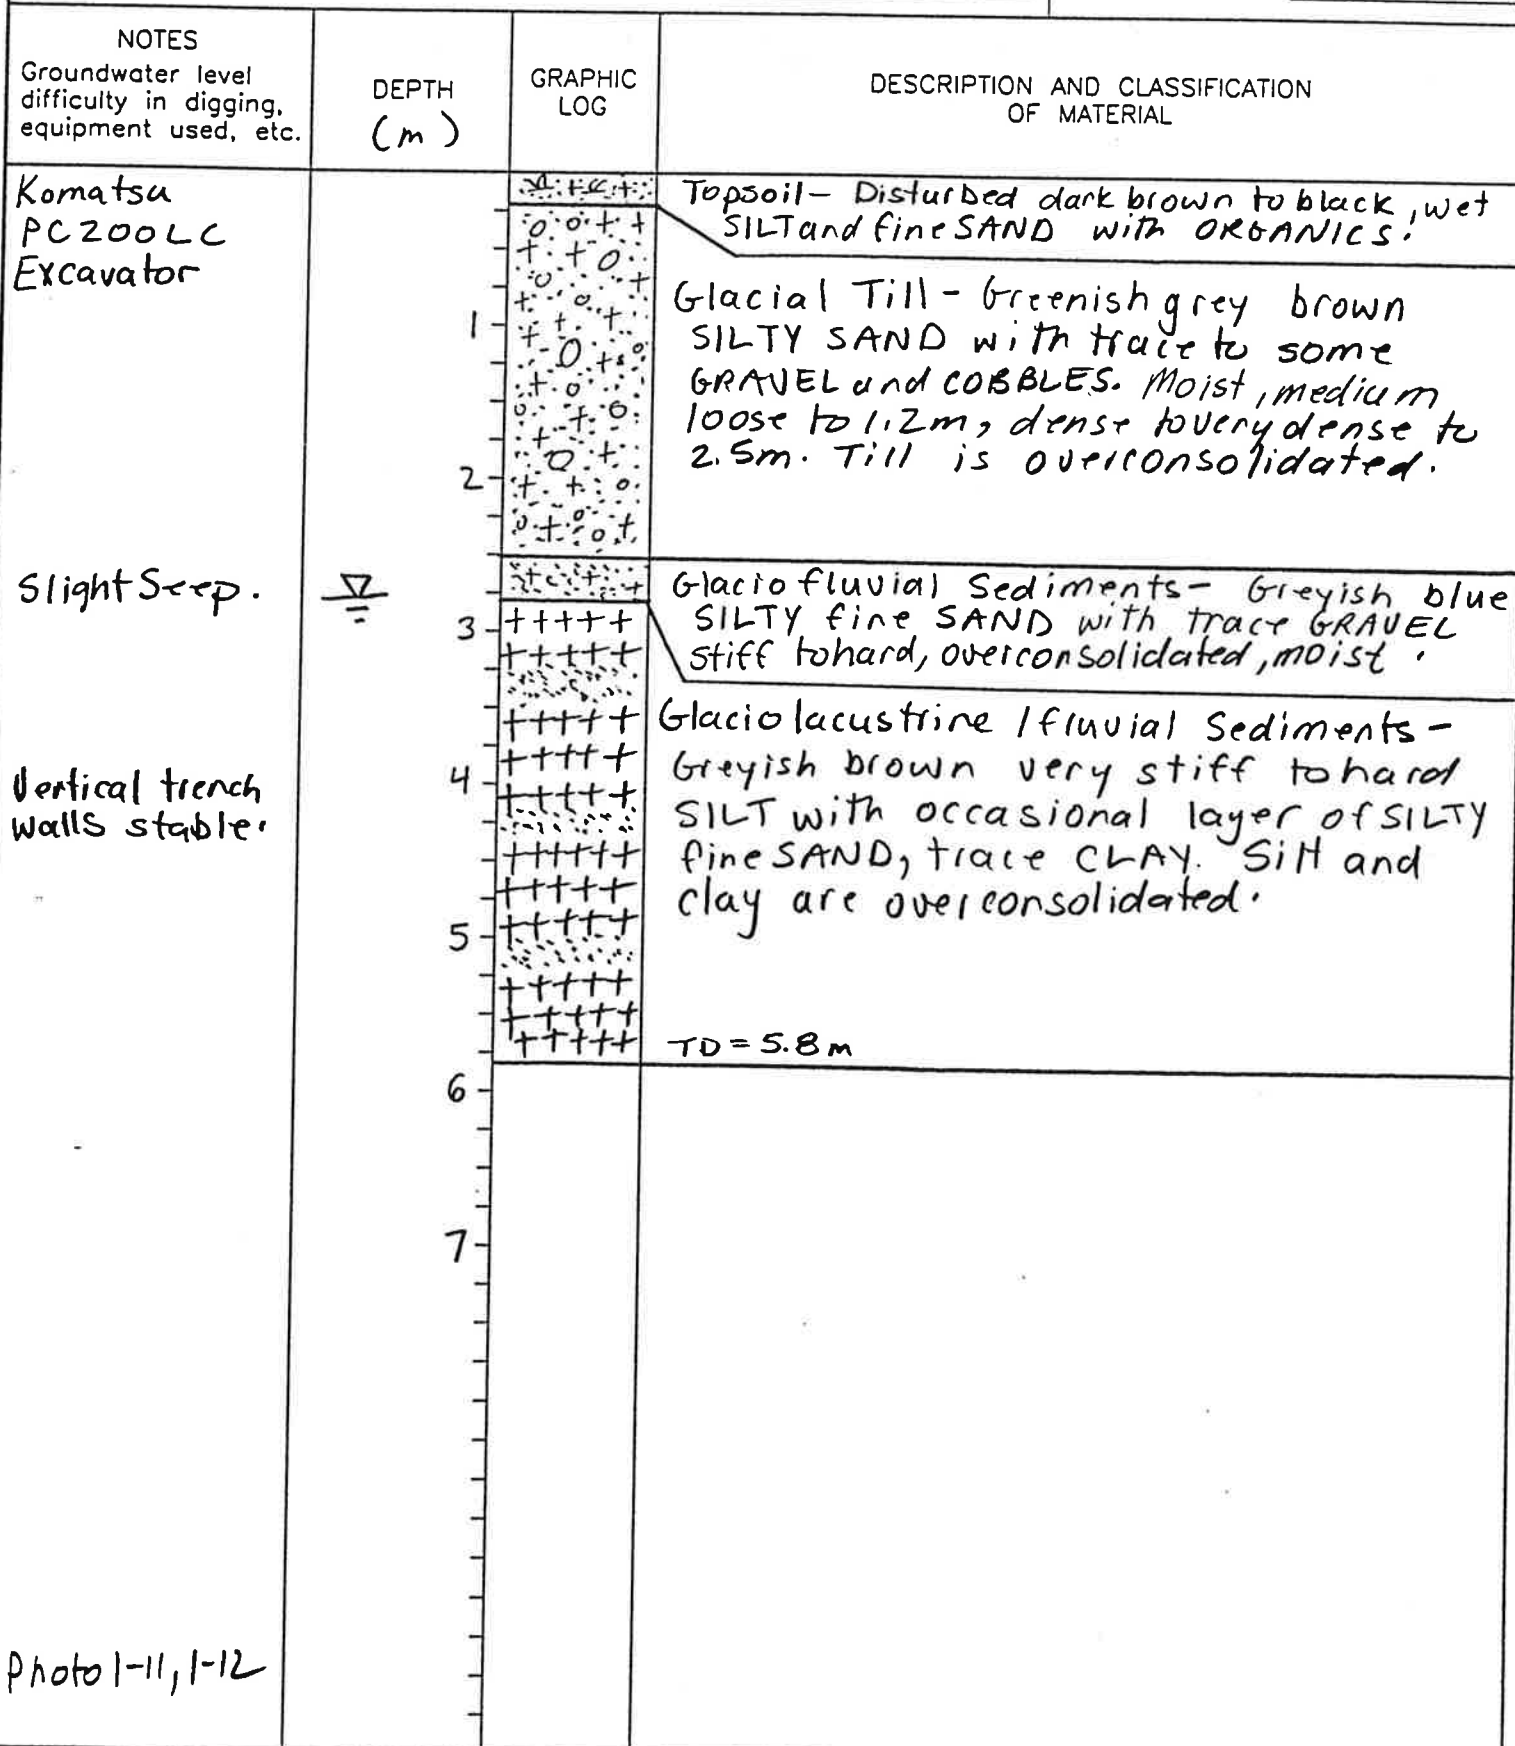 NOTES
Groundwater level
difficulty in digging,
equipment used, etc.
DEPTH
(m)
GRAPHIC
LOG
DESCRIPTION AND CLASSIFICATION
OF MATERIAL
Komatsu
PC200LC
Excavator
Topsoil - Disturbed dark brown to black, wet
SILT and fine SAND with ORGANICS.
Glacial Till - Greenish grey brown
SILTY SAND with trace to some
GRAVEL and COBBLES. Moist, medium
loose to 1.2m, dense to very dense to
2.5m. Till is overconsolidated.
1
2
Slight Seep.
Glaciofluvial Sediments - Greyish blue
SILTY fine SAND with trace GRAVEL
stiff to hard, overconsolidated, moist.
3
Glaciolacustrine / fluvial Sediments -
Greyish brown very stiff to hard
SILT with occasional layer of SILTY
fine SAND, trace CLAY. Silt and
clay are overconsolidated.
4
Vertical trench
walls stable.
5
TD = 5.8 m
6
7
Photo 1-11, 1-12